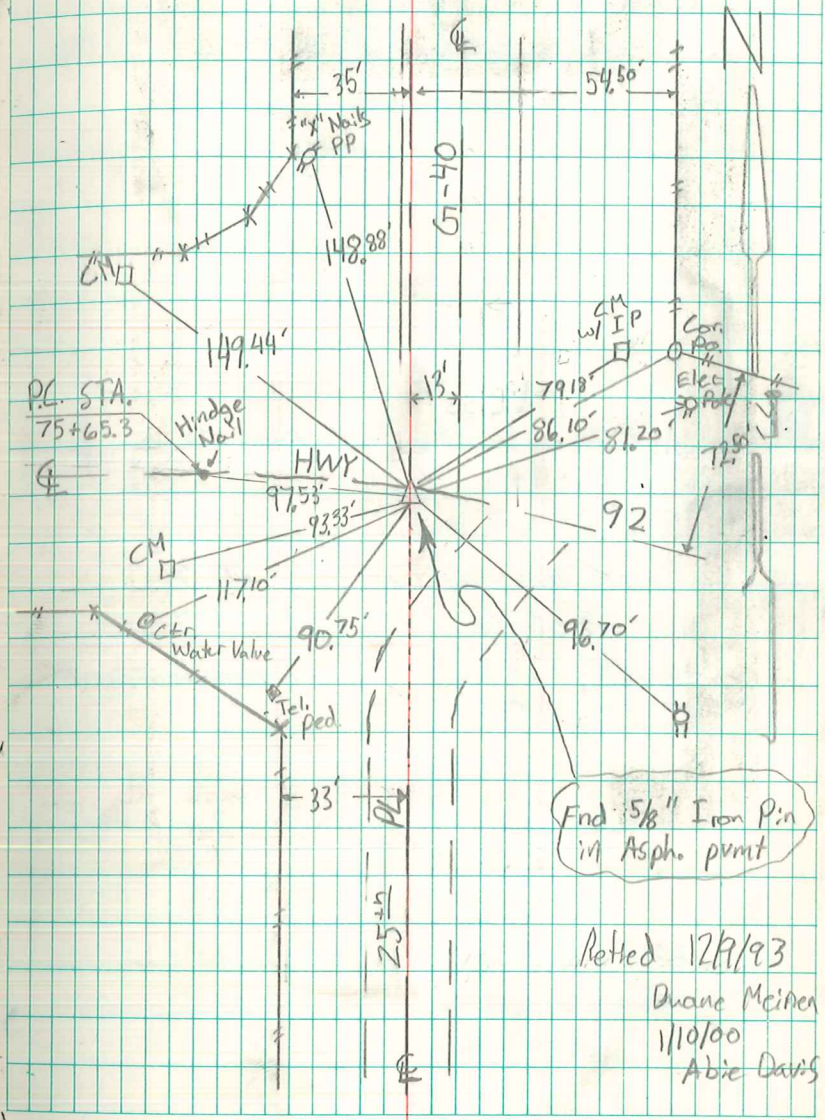 ℄
N
35'
54.50'
"x" Nails
PP
G-40
148.88'
CM
149.44'
CM
w/ IP
Cor.
Po.
79.18'
Elect
Pole
13'
86.10'
81.20'
72.50'
P.C. STA.
75+65.3
Hindge
Nail
℄
HWY
97.53'
92
93.33'
CM
117.10'
Ctr
Water Valve
90.75'
96.70'
Tel.
Ped.
33'
PL
25th
℄
Fnd 5/8" Iron Pin
in Asph. pvmt
Retied 12/9/93
Duane Meinen
1/10/00
Abie Davis